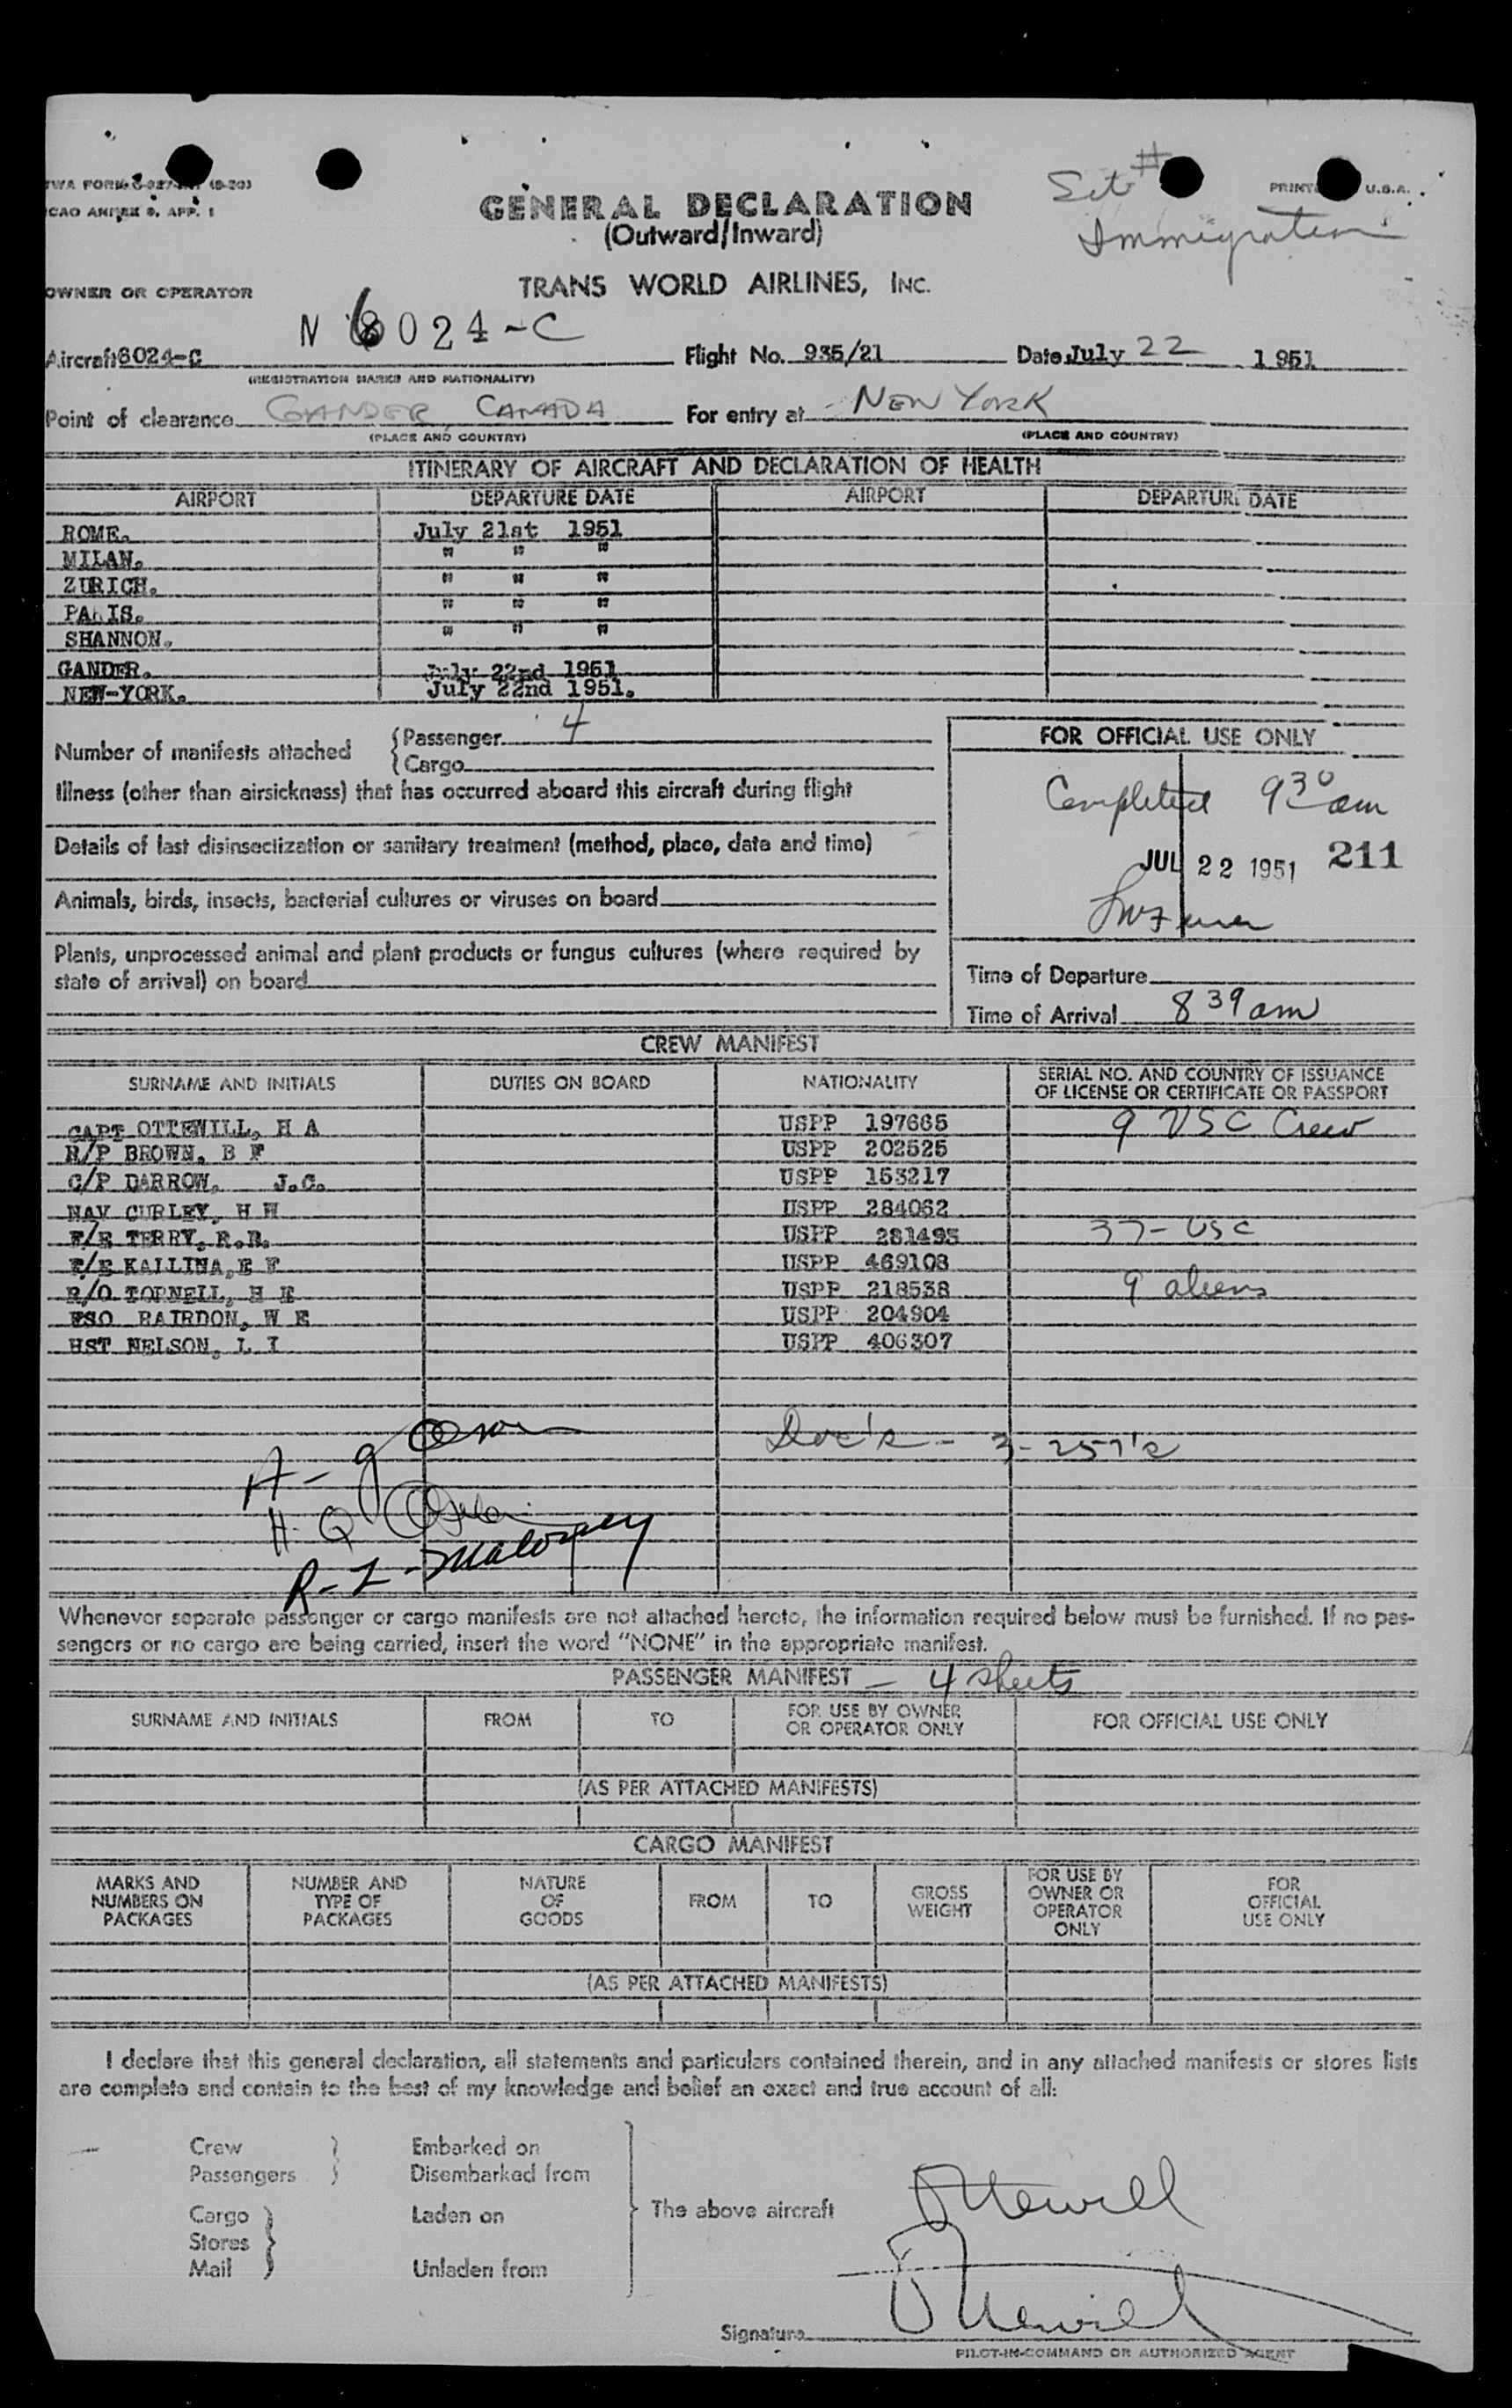 TWA FORM
ICAO ANNEX 9, APP. 1
GENERAL DECLARATION
(Outward/Inward)
Immigration
PRINTED U.S.A.
OWNER OR OPERATOR
TRANS WORLD AIRLINES, INC.
N 6024-C
Aircraft 6024-C Flight No. 935/21 Date July 22 1951
(REGISTRATION MARKS AND NATIONALITY)
Point of clearance GANDER, CANADA For entry at NEW YORK
(PLACE AND COUNTRY) (PLACE AND COUNTRY)
ITINERARY OF AIRCRAFT AND DECLARATION OF HEALTH
AIRPORT DEPARTURE DATE AIRPORT DEPARTURE DATE
ROME. July 21st 1951
MILAN. " " "
ZURICH. " " "
PARIS. " " "
SHANNON. " " "
GANDER. July 22nd 1951
NEW-YORK. July 22nd 1951.
Number of manifests attached { Passenger 4
{ Cargo
FOR OFFICIAL USE ONLY
Illness (other than airsickness) that has occurred aboard this aircraft during flight
Completed 9 30 am
Details of last disinsectization or sanitary treatment (method, place, date and time)
JUL 22 1951 211
Animals, birds, insects, bacterial cultures or viruses on board
Plants, unprocessed animal and plant products or fungus cultures (where required by
state of arrival) on board
Time of Departure
Time of Arrival 8 39 am
CREW MANIFEST
SURNAME AND INITIALS DUTIES ON BOARD NATIONALITY SERIAL NO. AND COUNTRY OF ISSUANCE
OF LICENSE OR CERTIFICATE OR PASSPORT
CAPT OTTEWILL, H A USPP 197665 9 USC Crew
R/P BROWN, B F USPP 202525
C/P DARROW, J.C. USPP 153217
NAV CURLEY, H H USPP 284062
F/E TERRY, R.R. USPP 281495 37 - USC
F/E KALLINA, E F USPP 469108
R/O TORNELL, H E USPP 218538 9 aliens
FSO BAIRDON, W E USPP 204904
HST NELSON, L I USPP 406307
Doc's - 3 - 257's
R-L-Maloney
Whenever separate passenger or cargo manifests are not attached hereto, the information required below must be furnished. If no pas-
sengers or no cargo are being carried, insert the word "NONE" in the appropriate manifest.
PASSENGER MANIFEST - 4 sheets
SURNAME AND INITIALS FROM TO FOR USE BY OWNER
OR OPERATOR ONLY FOR OFFICIAL USE ONLY
(AS PER ATTACHED MANIFESTS)
CARGO MANIFEST
MARKS AND
NUMBERS ON
PACKAGES
NUMBER AND
TYPE OF
PACKAGES
NATURE
OF
GOODS
FROM
TO
GROSS
WEIGHT
FOR USE BY
OWNER OR
OPERATOR
ONLY
FOR
OFFICIAL
USE ONLY
(AS PER ATTACHED MANIFESTS)
I declare that this general declaration, all statements and particulars contained therein, and in any attached manifests or stores lists
are complete and contain to the best of my knowledge and belief an exact and true account of all:
Crew } Embarked on
Passengers } Disembarked from
Cargo } Laden on
Stores }
Mail } Unladen from
The above aircraft
Ottewill
Ottewill
Signature
PILOT-IN-COMMAND OR AUTHORIZED AGENT